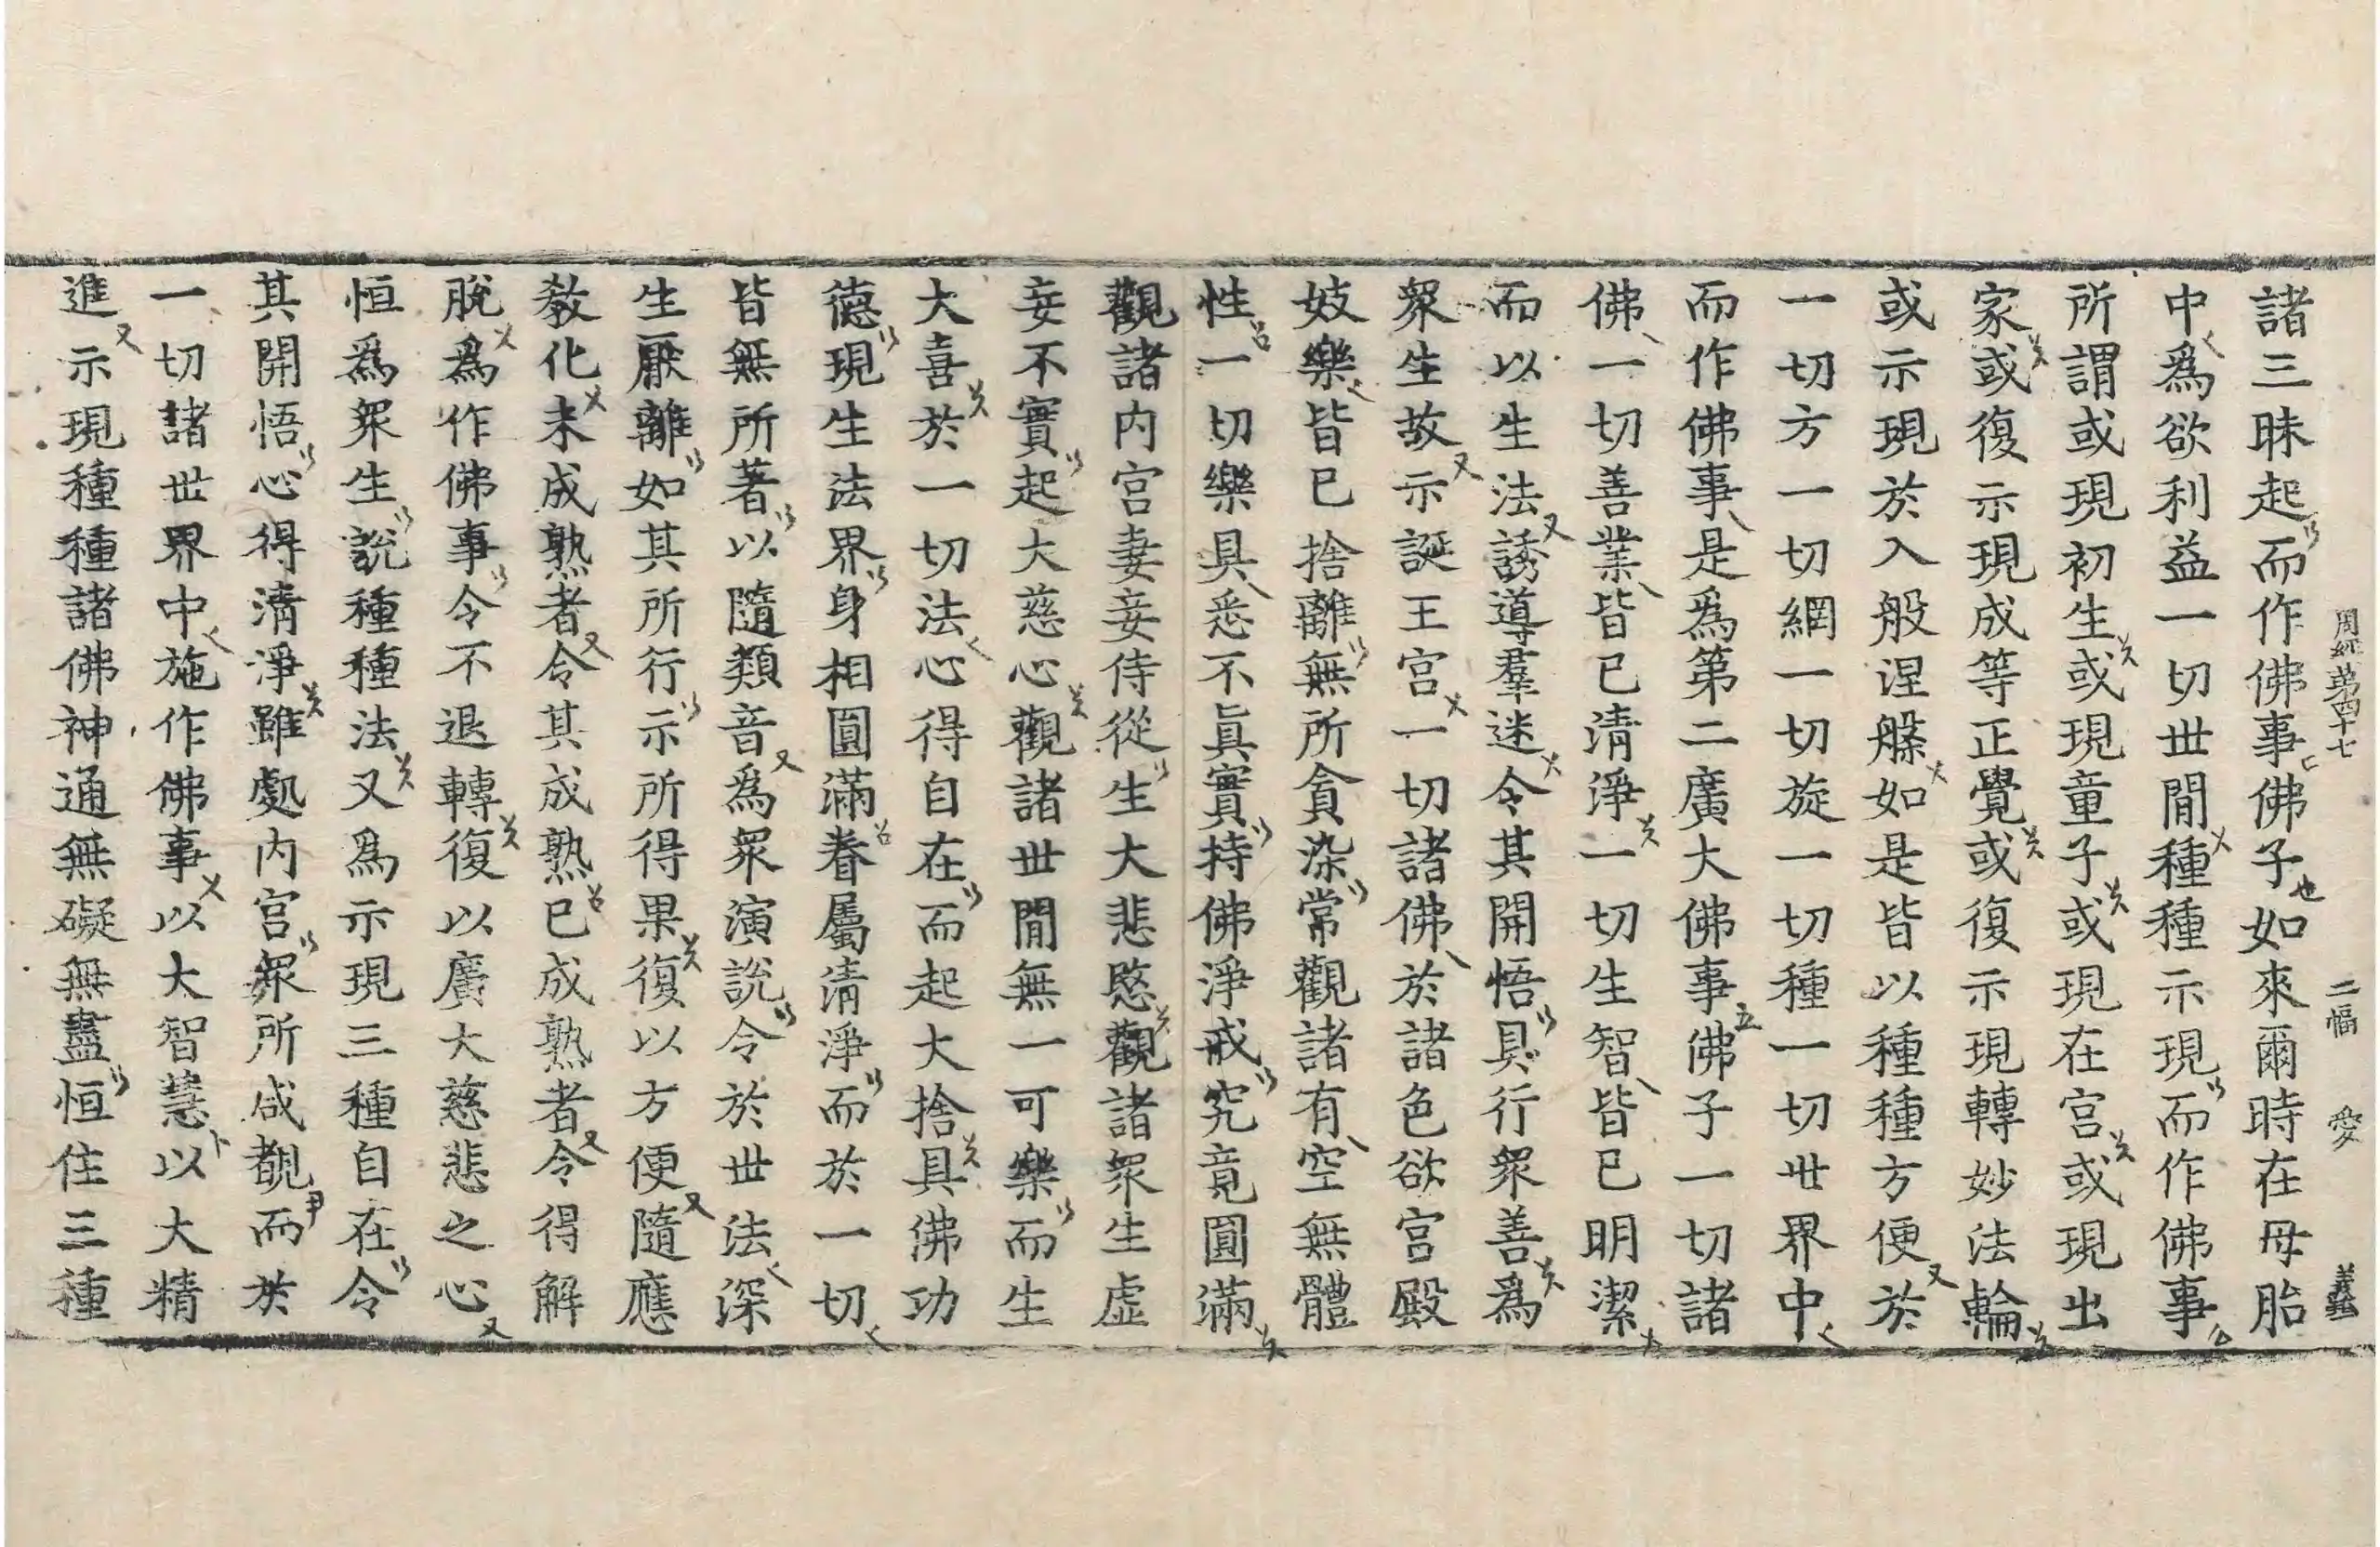 周經第四十七 二幅 愛 義
諸三昧起而作佛事佛子如來爾時在母胎
中爲欲利益一切世間種種示現而作佛事
所謂或現初生或現童子或現在宮或現出
家或復示現成等正覺或復示現轉妙法輪
或示現於入般涅槃如是皆以種種方便於
一切方一切網一切旋一切種一切世界中
而作佛事是爲第二廣大佛事佛子一切諸
佛一切善業皆已清淨一切生智皆已明潔
而以生法誘導羣迷令其開悟具行衆善爲
衆生故示誕王宮一切諸佛於諸色欲宮殿
妓樂皆已捨離無所貪染常觀諸有空無體
性一切樂具悉不眞實持佛淨戒究竟圓滿
觀諸內宮妻妾侍從生大悲愍觀諸衆生虛
妄不實起大慈心觀諸世間無一可樂而生
大喜於一切法心得自在而起大捨具佛功
德現生法界身相圓滿眷屬清淨而於一切
皆無所著以隨類音爲衆演說令於世法深
生厭離如其所行示所得果復以方便隨應
教化未成熟者令其成熟已成熟者令得解
脫爲作佛事令不退轉復以廣大慈悲之心
恒爲衆生說種種法又爲示現三種自在令
其開悟心得清淨雖處內宮衆所咸覩而於
一切諸世界中施作佛事以大智慧以大精
進示現種種諸佛神通無礙無盡恒住三種